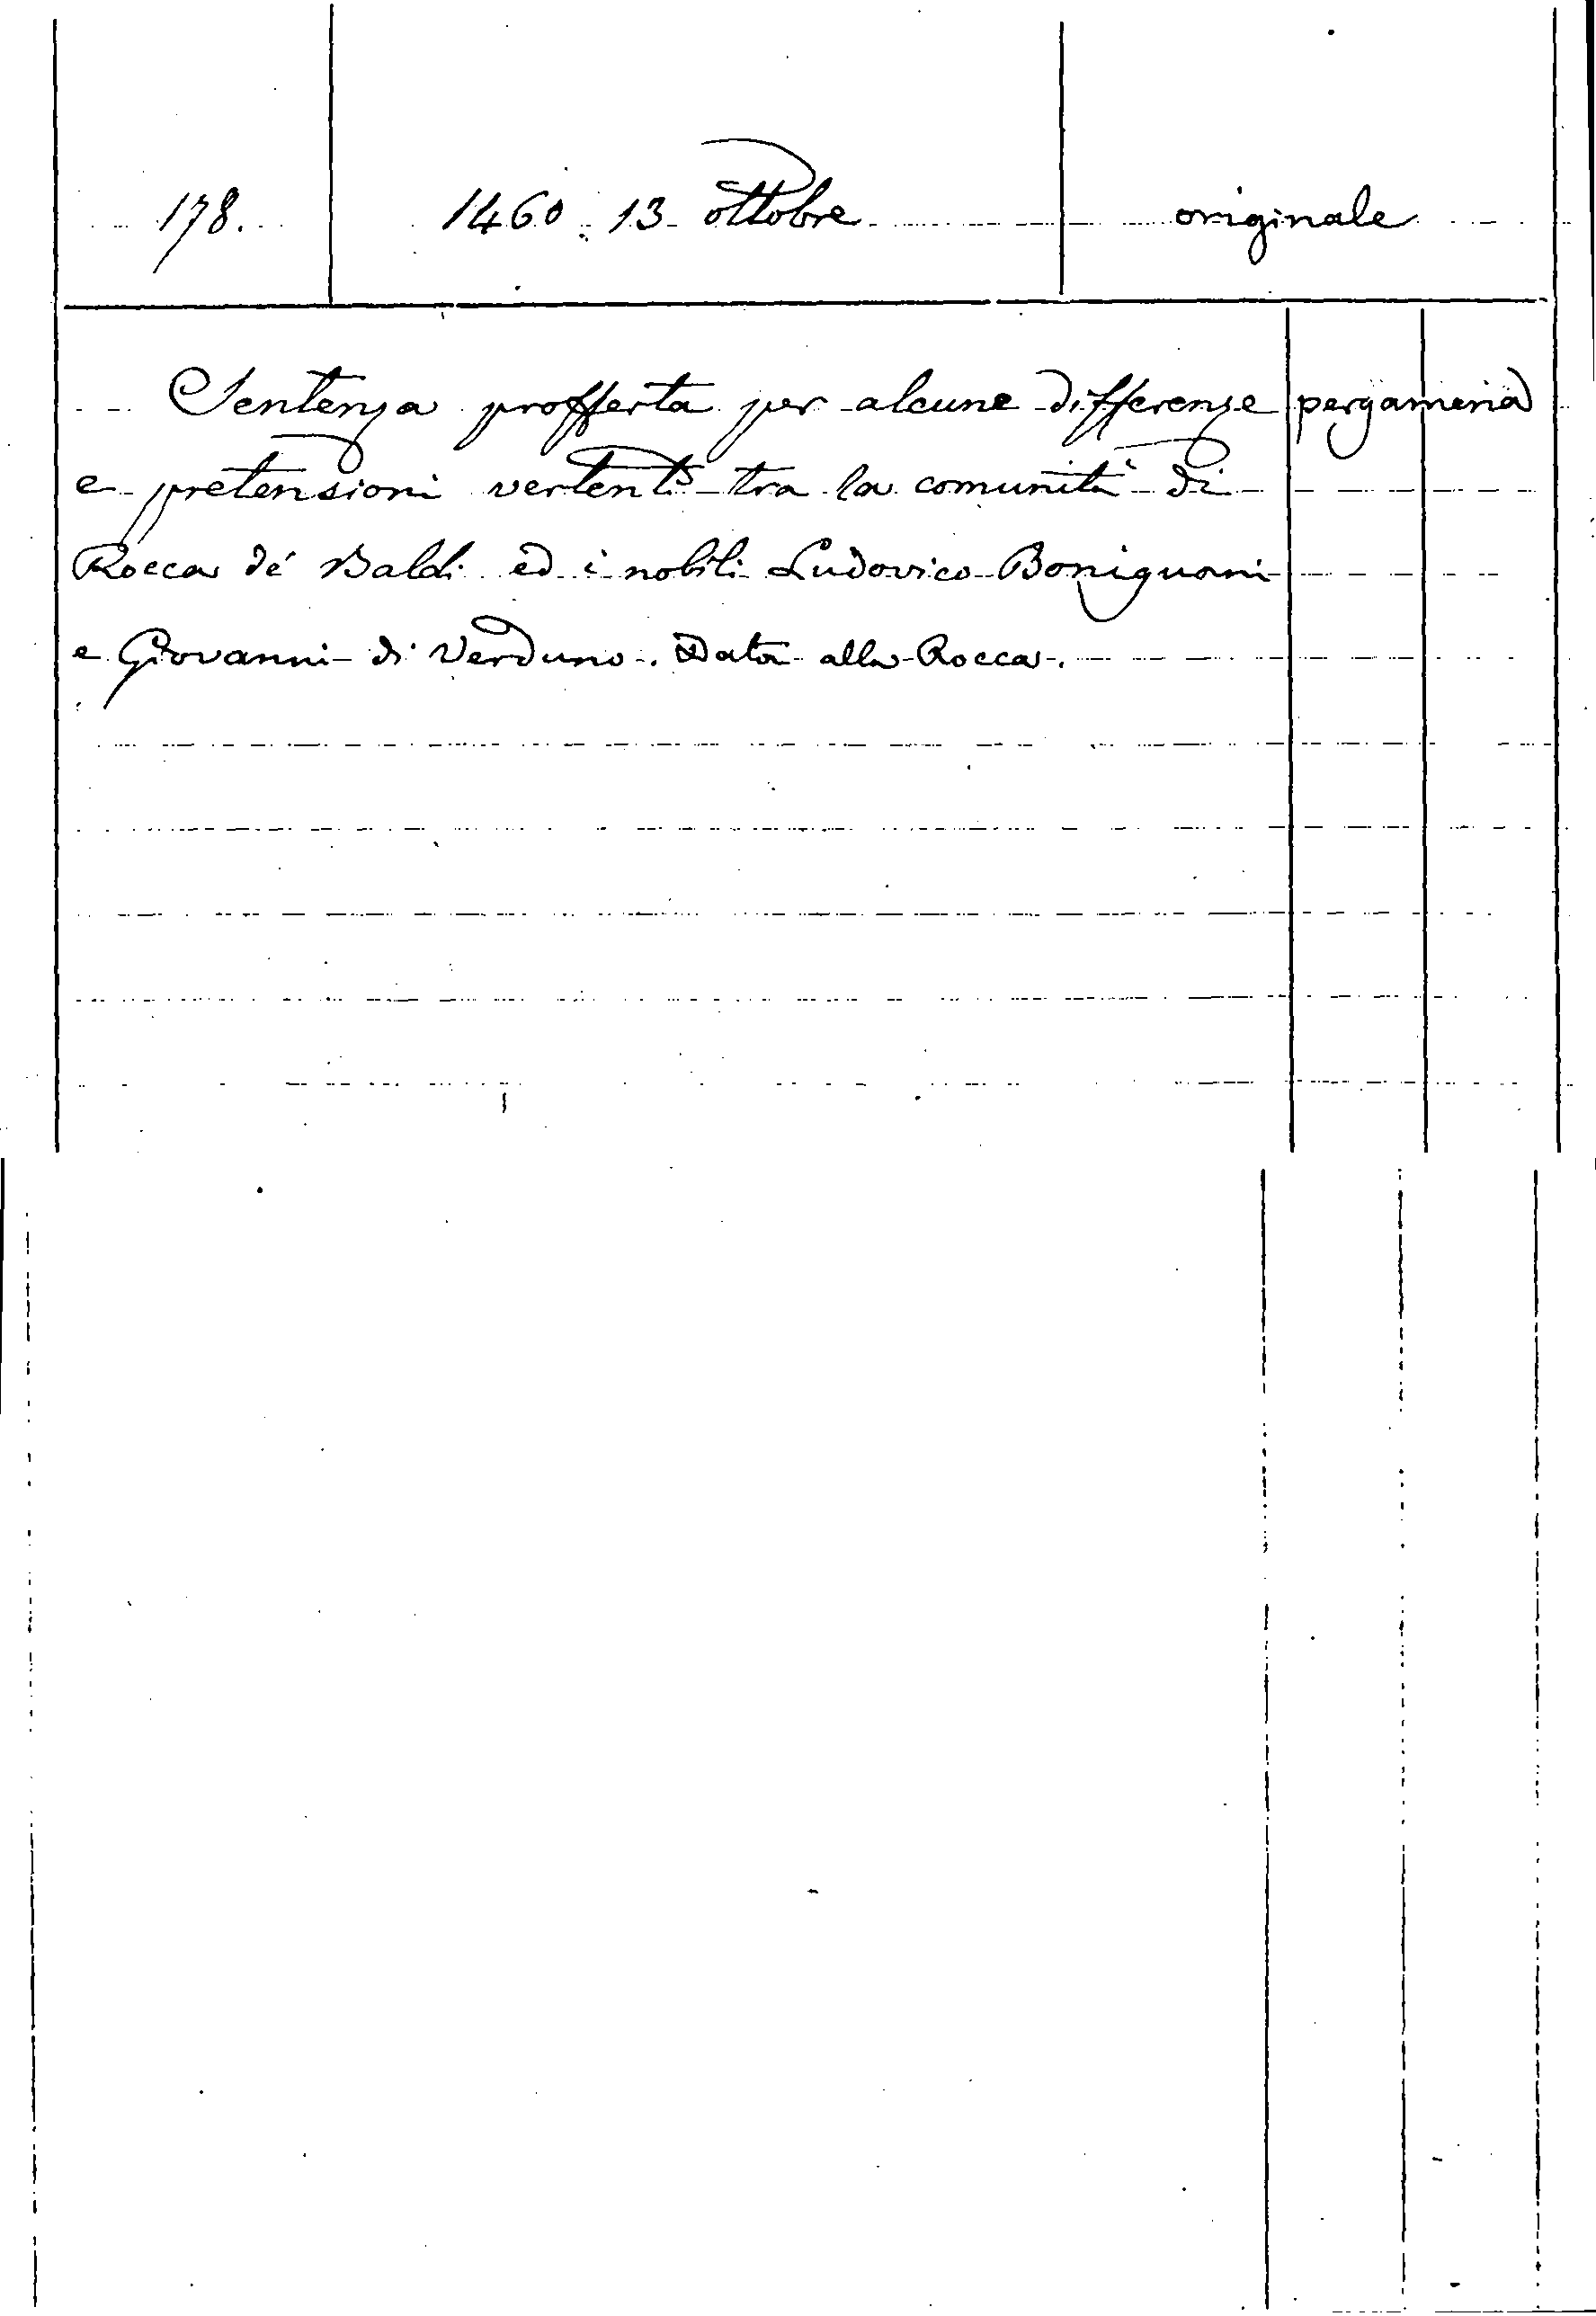 178. 1460 13 ottobre originale
Sentenza profferta per alcune differenze pergamena
e pretensioni vertenti tra la comunità di
Rocca de' Baldi ed i nobili Ludovico Boniguani
e Giovanni di Verduno. Data alla Rocca.